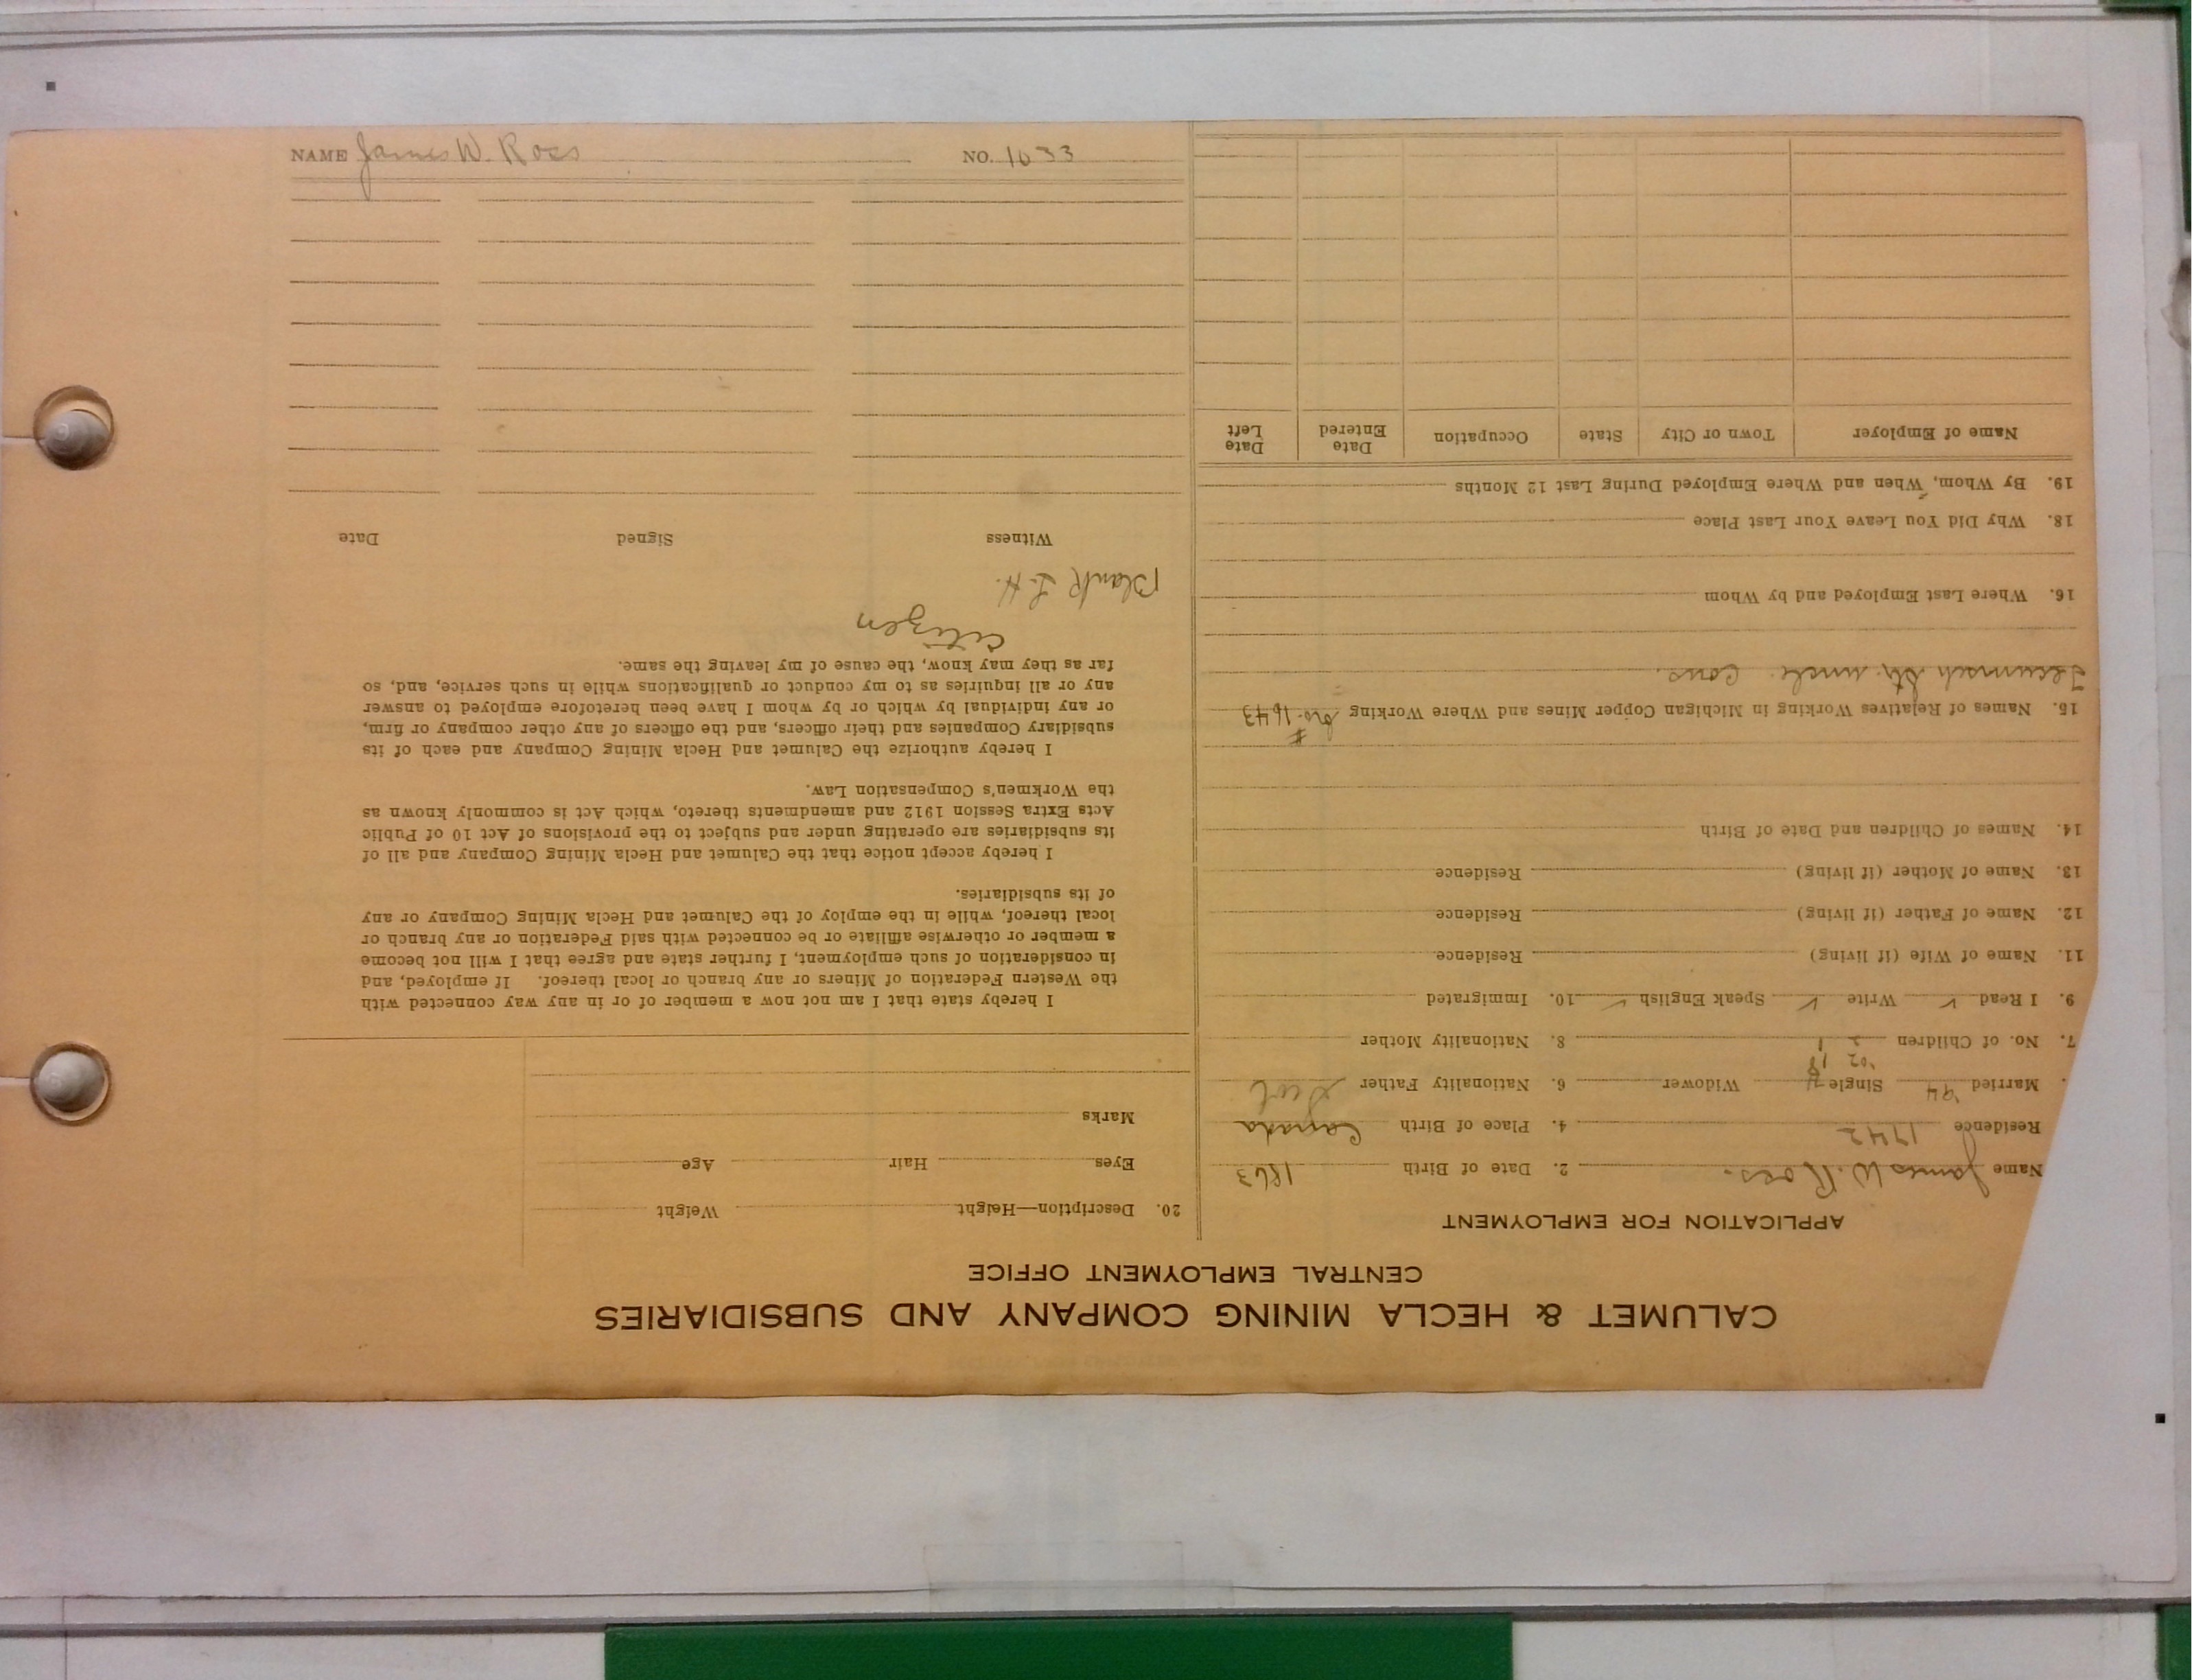 CALUMET & HECLA MINING COMPANY AND SUBSIDIARIES
CENTRAL EMPLOYMENT OFFICE
APPLICATION FOR EMPLOYMENT
Name James W. Ross. 2. Date of Birth 1863
Residence 1742 4. Place of Birth Canada
Married '94 Single Widower 6. Nationality Father
'02 18
7. No. of Children 2 1 8. Nationality Mother
9. I Read ✓ Write ✓ Speak English ✓ 10. Immigrated
11. Name of Wife (if living) Residence
12. Name of Father (if living) Residence
13. Name of Mother (if living) Residence
14. Names of Children and Date of Birth
15. Names of Relatives Working in Michigan Copper Mines and Where Working Bro. #1643
Tecumseh Str. uncle. Cous.
16. Where Last Employed and by Whom
18. Why Did You Leave Your Last Place
19. By Whom, When and Where Employed During Last 12 Months
Name of Employer Town or City State Occupation Date Entered Date Left
20. Description—Height Weight
Eyes Hair Age
Marks
I hereby state that I am not now a member of or in any way connected with
the Western Federation of Miners or any branch or local thereof. If employed, and
in consideration of such employment, I further state and agree that I will not become
a member or otherwise affiliate or be connected with said Federation or any branch or
local thereof, while in the employ of the Calumet and Hecla Mining Company or any
of its subsidiaries.
I hereby accept notice that the Calumet and Hecla Mining Company and all of
its subsidiaries are operating under and subject to the provisions of Act 10 of Public
Acts Extra Session 1912 and amendments thereto, which Act is commonly known as
the Workmen's Compensation Law.
I hereby authorize the Calumet and Hecla Mining Company and each of its
subsidiary Companies and their officers, and the officers of any other company or firm,
or any individual by which or by whom I have been heretofore employed to answer
any or all inquiries as to my conduct or qualifications while in such service, and, so
far as they may know, the cause of my leaving the same.
citizen
Blank L. H.
Witness Signed Date
NAME James W. Ross NO. 1633